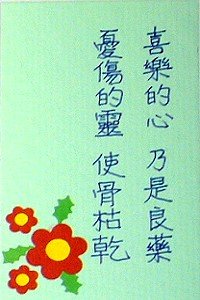 喜樂的心 乃是良藥
憂傷的靈 使骨枯乾